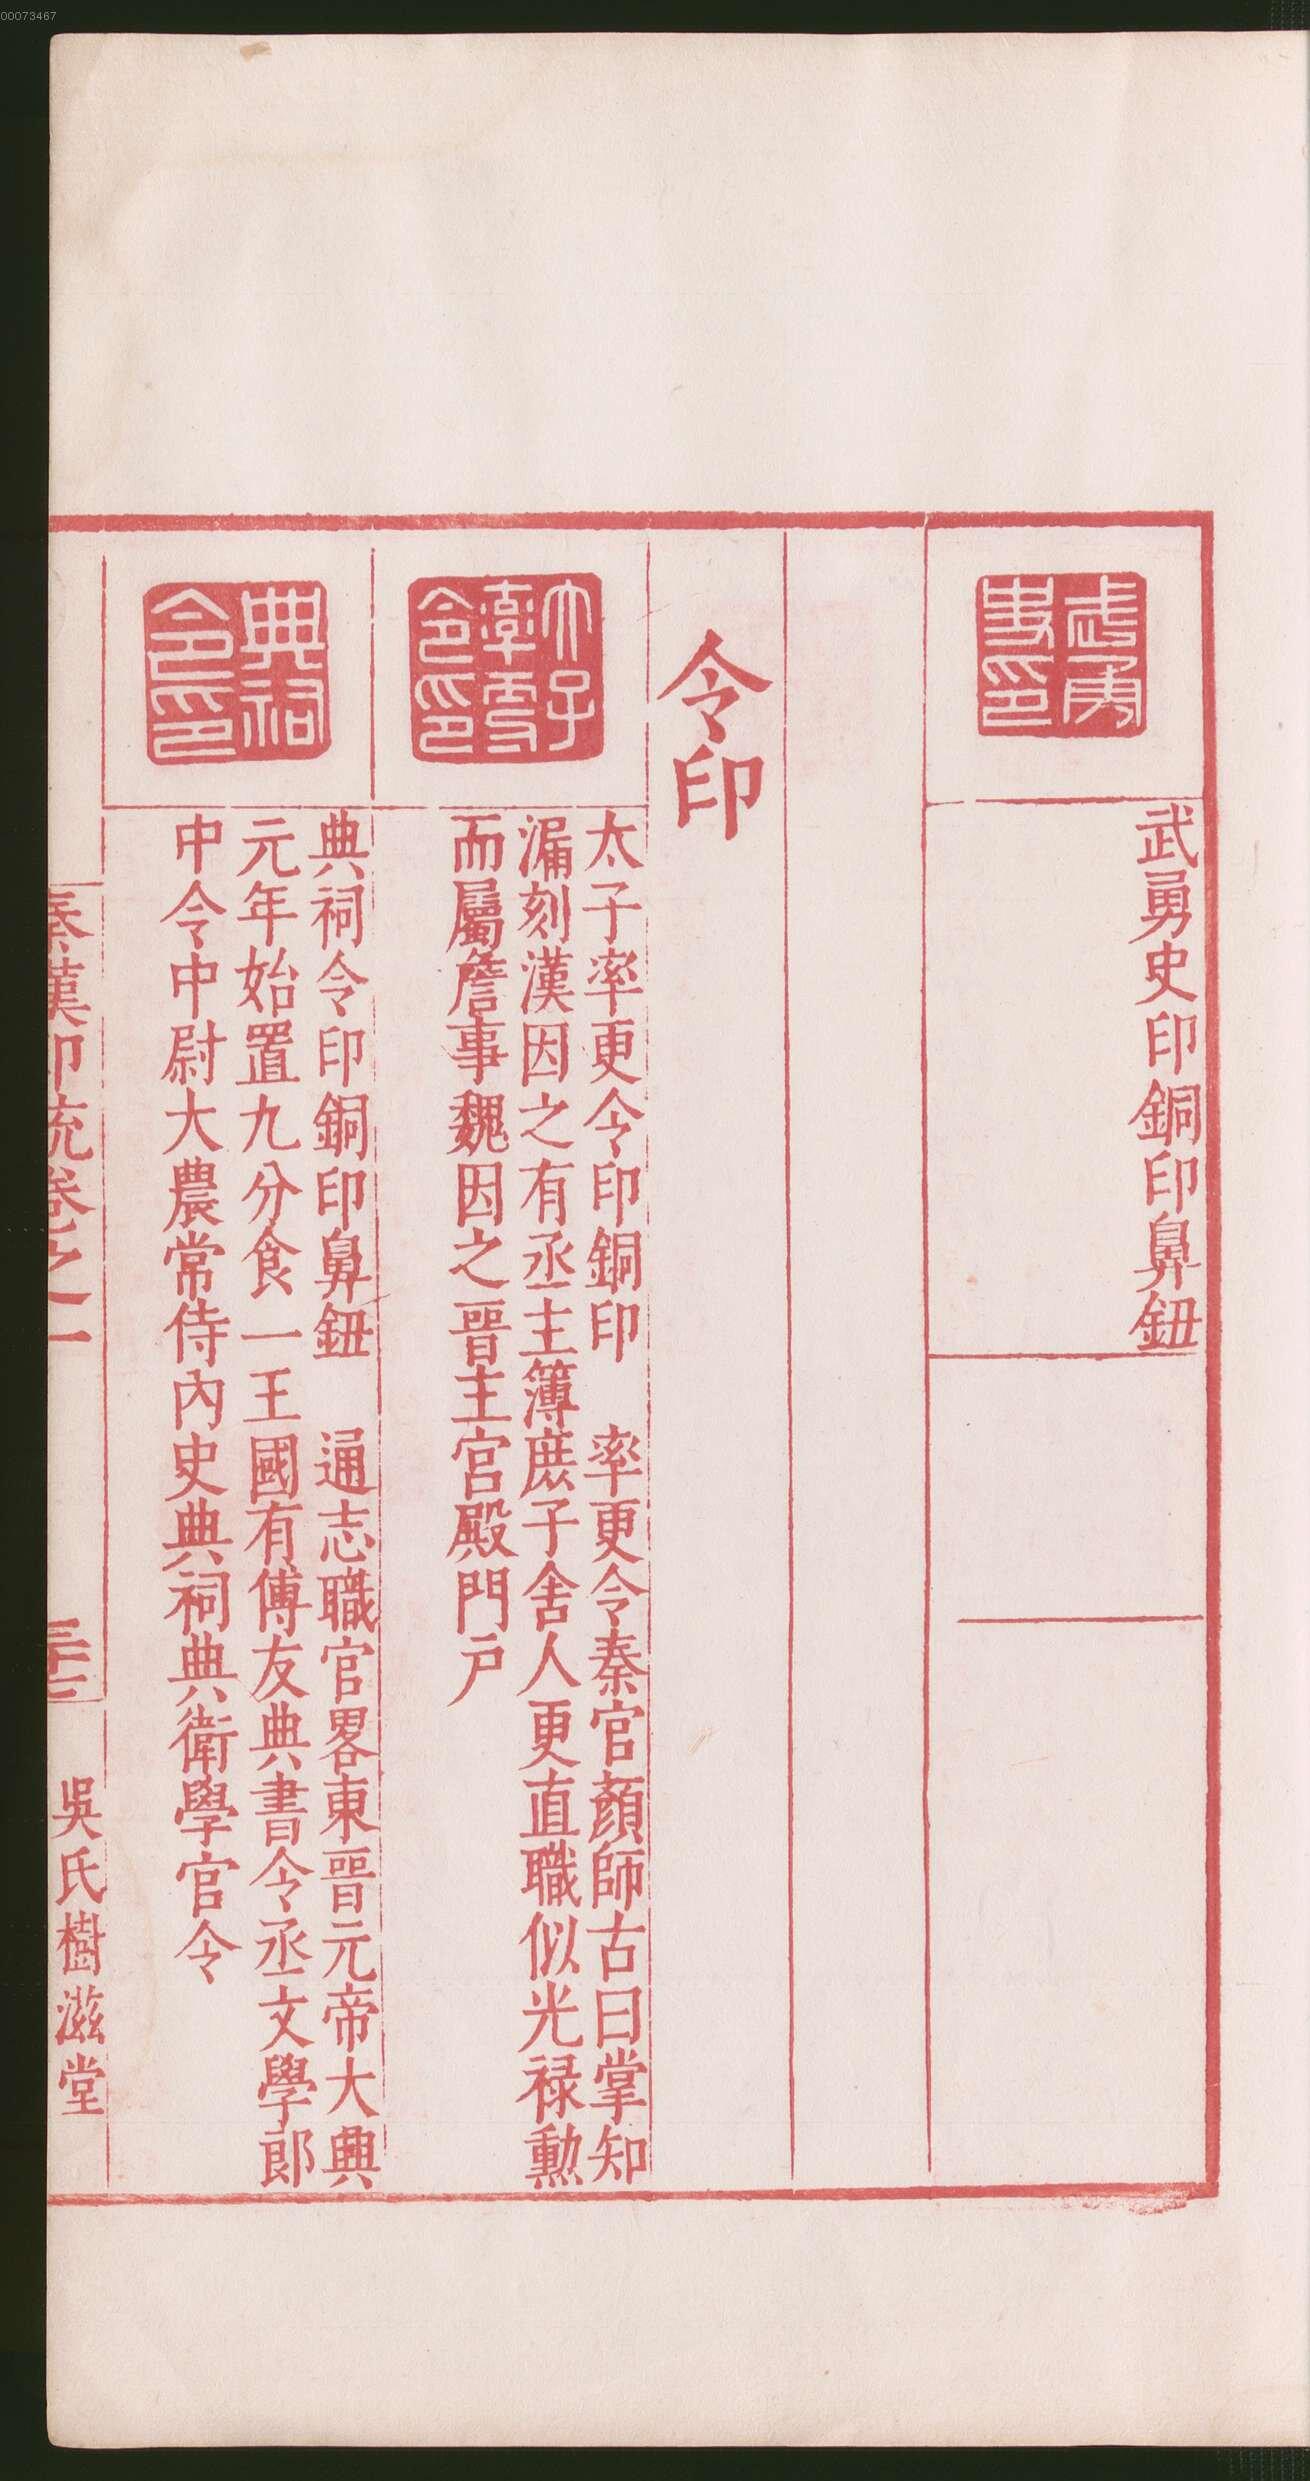 00073467
武勇史印
武勇史印銅印鼻鈕
令印
太子率更令印
太子率更令印銅印　率更令秦官顏師古曰掌知
漏刻漢因之有丞主簿庶子舍人更直職似光祿勳
而屬詹事魏因之晉主宮殿門戶
典祠令印
典祠令印銅印鼻鈕　通志職官畧東晉元帝大典
元年始置九分食一王國有傅友典書令丞文學郎
中令中尉大農常侍內史典祠典衛學官令
秦漢印統卷之一
吳氏樹滋堂